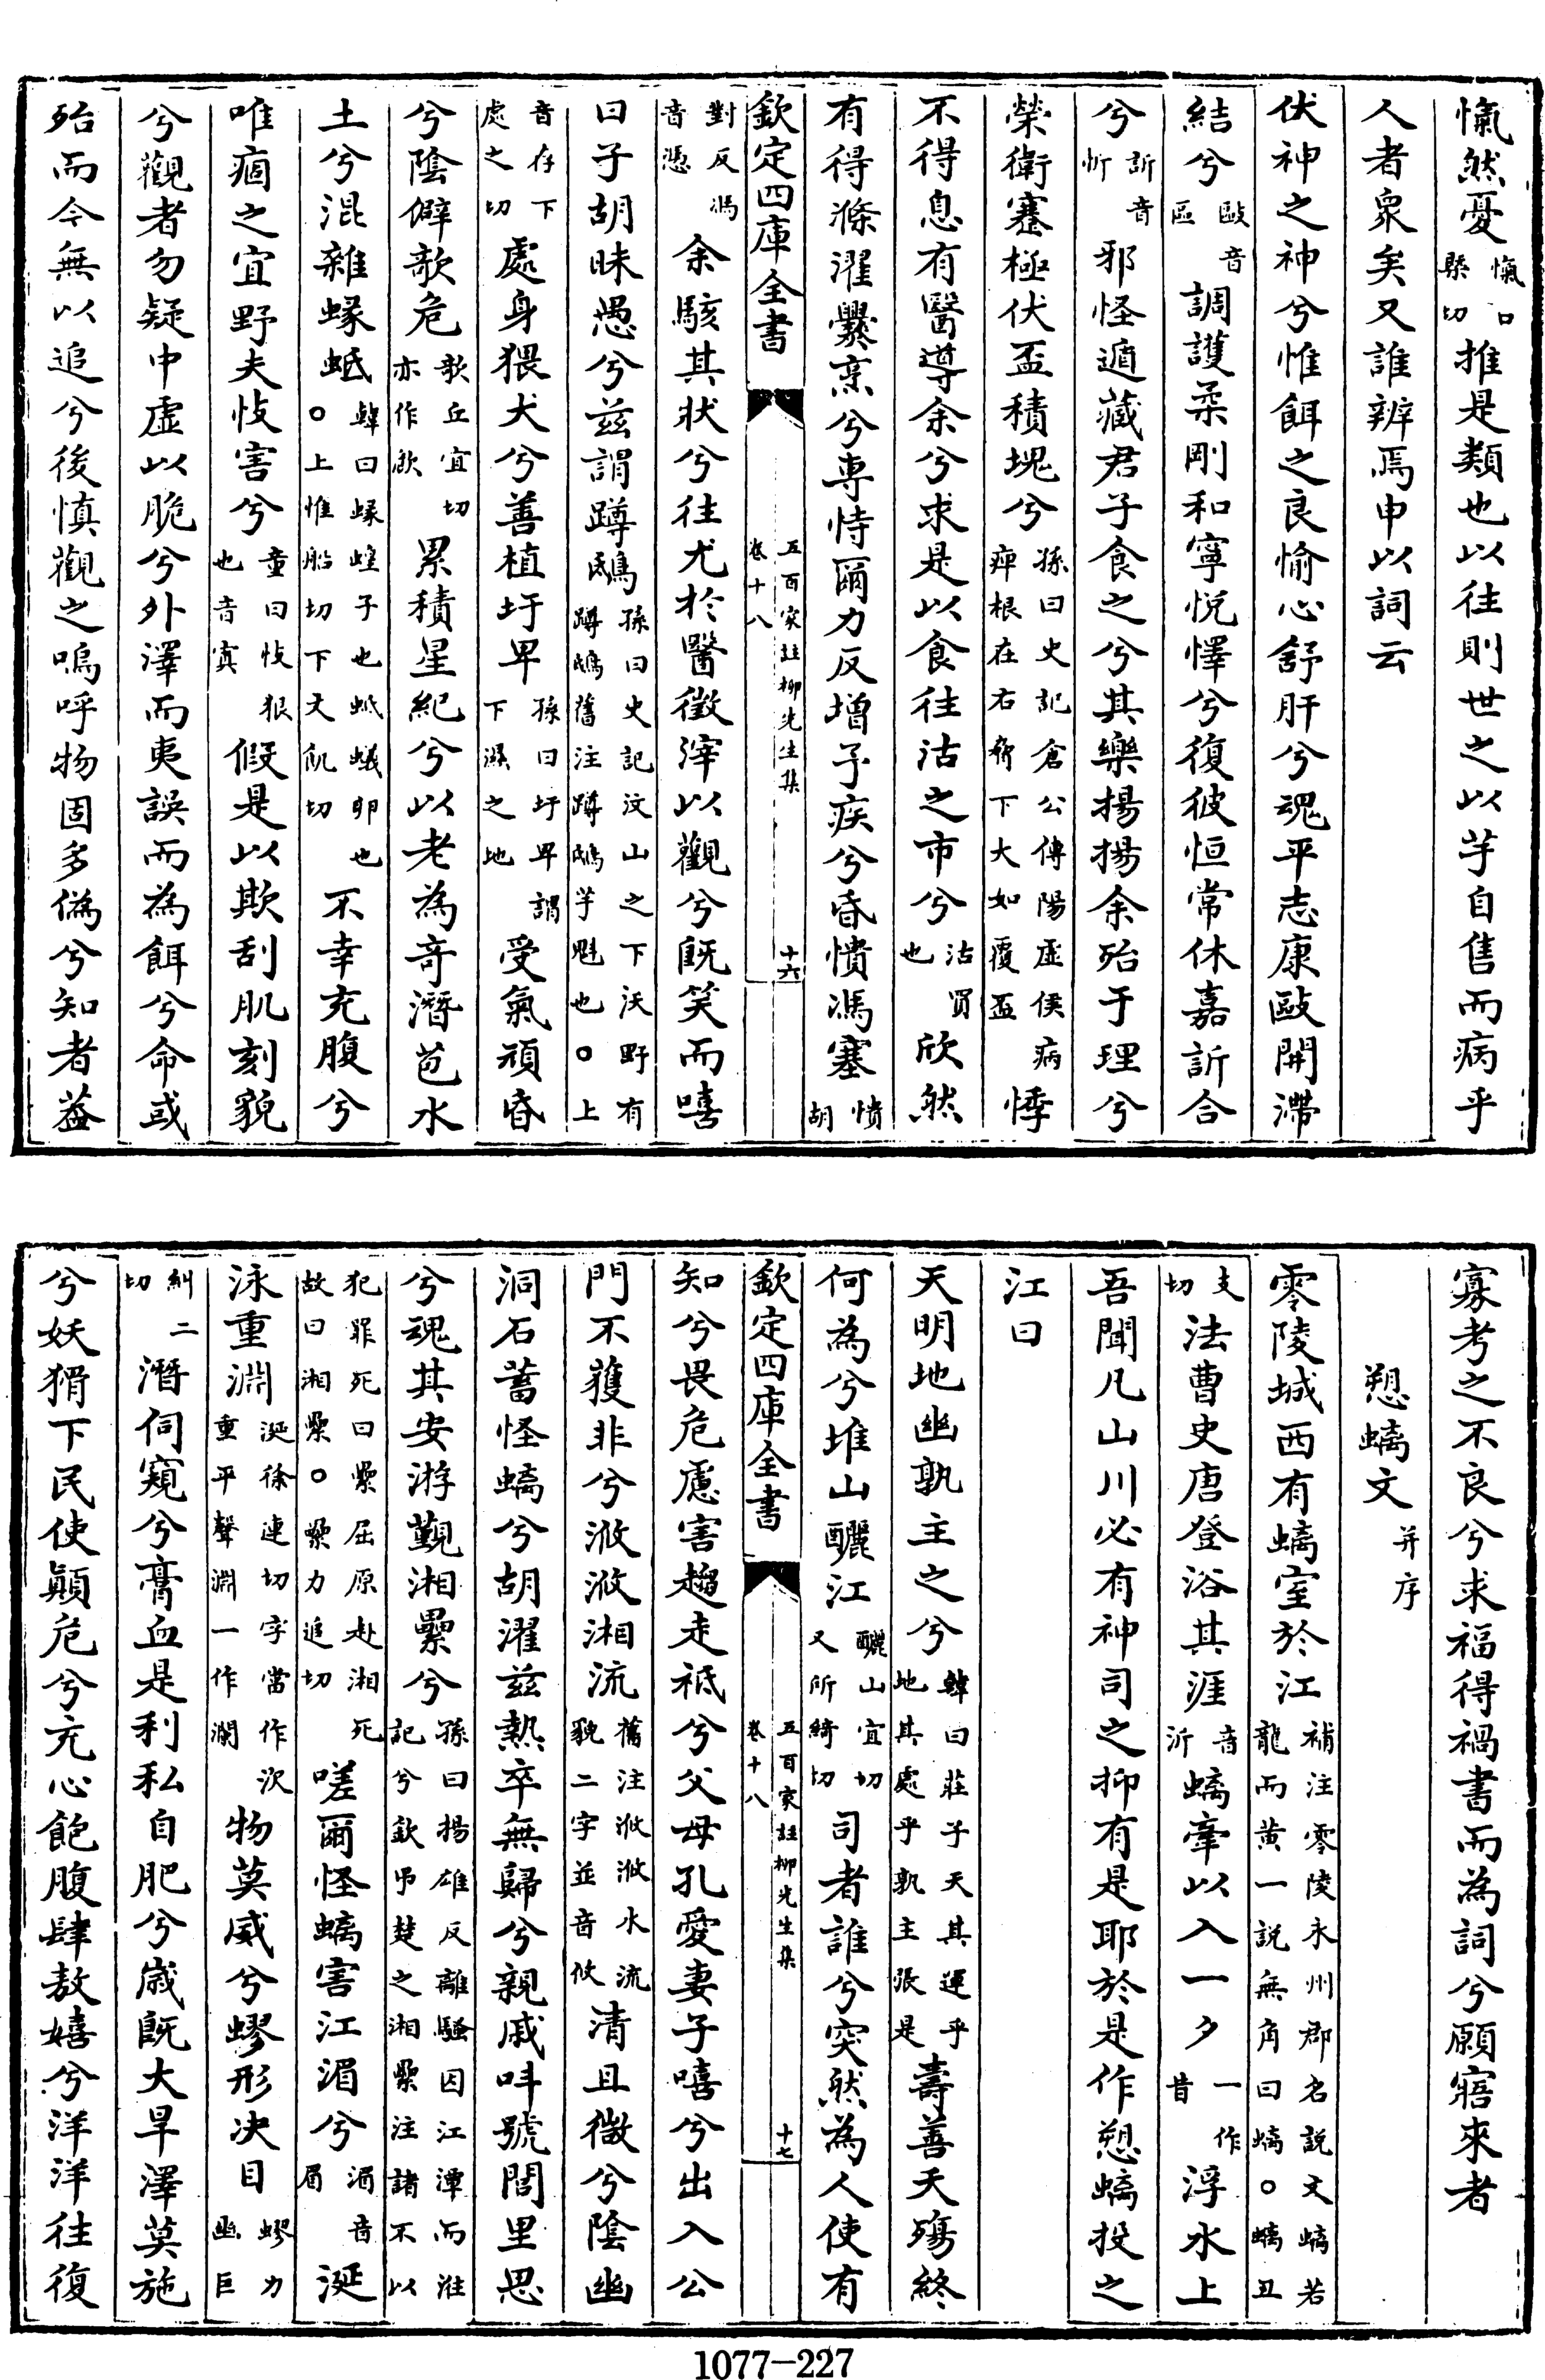 愾然憂愾口槩切推是類也以往則世之以芋自售而病乎
人者衆矣又誰辨焉申以詞云
伏神之神兮惟餌之良愉心舒肝兮魂平志康敺開滯
結兮敺音區調護柔剛和寧悅懌兮復彼恒常休嘉訢合
兮訢音忻邪怪遁藏君子食之兮其樂揚揚余殆于理兮
榮衛蹇極伏盃積塊兮孫曰史記倉公傳陽虛侯病痺根在右脅下大如覆盃悸
不得息有醫導余兮求是以食往沽之市兮沽買也欣然
有得滌濯爨烹兮專恃爾力反增予疾兮昏憒馮塞憒胡
欽定四庫全書
五百家註柳先生集
卷十八
十六
對反馮音憑余駭其狀兮往尤於醫徵滓以觀兮既笑而嘻
曰子胡昧愚兮茲謂蹲鴟孫曰史記汶山之下沃野有蹲鴟舊注蹲鴟芋魁也○上
音存下處之切處身猥犬兮善植圩卑孫曰圩卑謂下濕之地受氣頑昏
兮陰僻欹危欹丘宜切亦作㩻累積星紀兮以老為竒潛苞水
土兮混雜蝝蚳韓曰蝝蝗子也蚳蟻卵也○上惟船切下丈飢切不幸充腹兮
唯痼之宜野夫忮害兮童曰忮狠也音寘假是以欺刮肌刻貌
兮觀者勿疑中虛以脆兮外澤而夷誤而為餌兮命或
殆而今無以追兮後慎觀之嗚呼物固多偽兮知者葢
寡考之不良兮求福得禍書而為詞兮願寤來者
愬螭文并序
零陵城西有螭室於江補注零陵永州郡名說文螭若龍而黄一說無角曰螭○螭丑
支切法曹史唐登浴其涯音沂螭牽以入一夕一作昔浮水上
吾聞凡山川必有神司之抑有是耶於是作愬螭投之
江曰
天明地幽孰主之兮韓曰莊子天其運乎地其處乎孰主張是壽善夭殤終
何為兮堆山釃江釃山宜切又所綺切司者誰兮突然為人使有
欽定四庫全書
五百家註柳先生集
卷十八
十七
知兮畏危慮害趨走祗兮父母孔愛妻子嘻兮出入公
門不獲非兮浟浟湘流舊注浟浟水流貌二字並音攸清且微兮陰幽
洞石蓄怪螭兮胡濯茲熱卒無歸兮親戚呌號閭里思
兮魂其安游覲湘纍兮孫曰揚雄反離騷因江潭而淮記兮欽弔楚之湘纍注諸不以
犯罪死曰纍屈原赴湘死故曰湘纍○纍力追切嗟爾怪螭害江湄兮湄音眉涎
泳重淵涎徐連切字當作次重平聲淵一作瀾物莫威兮蟉形决目蟉力幽巨
糾二切潛伺窺兮膏血是利私自肥兮歲既大旱澤莫施
兮妖猾下民使顛危兮充心飽腹肆敖嬉兮洋洋往復
1077-227